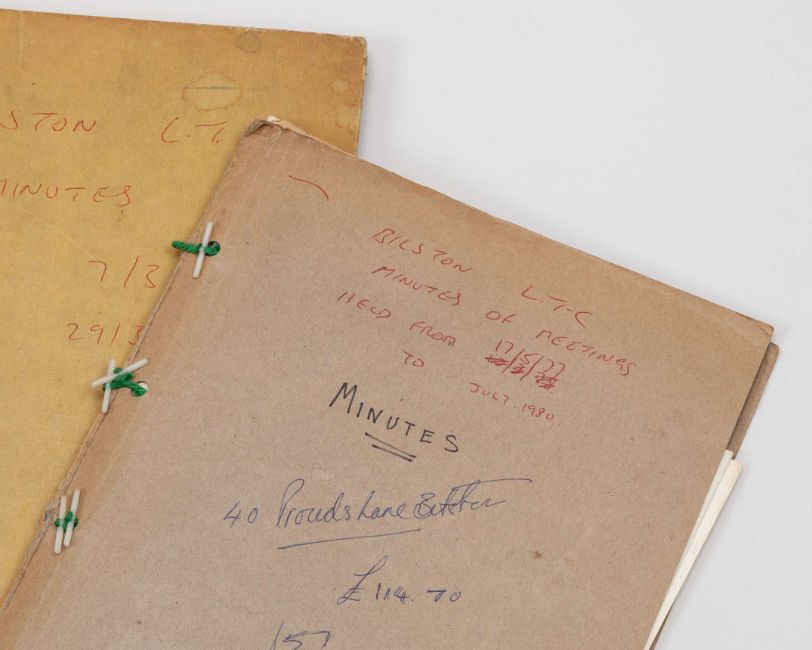 STON L.T.
MINUTES
7/3
29/3
BILSTON L.T.C
MINUTES OF MEETINGS
HELD FROM 17/5/77
TO JULY. 1980.
MINUTES
40 Prouds Lane
£114.70
157